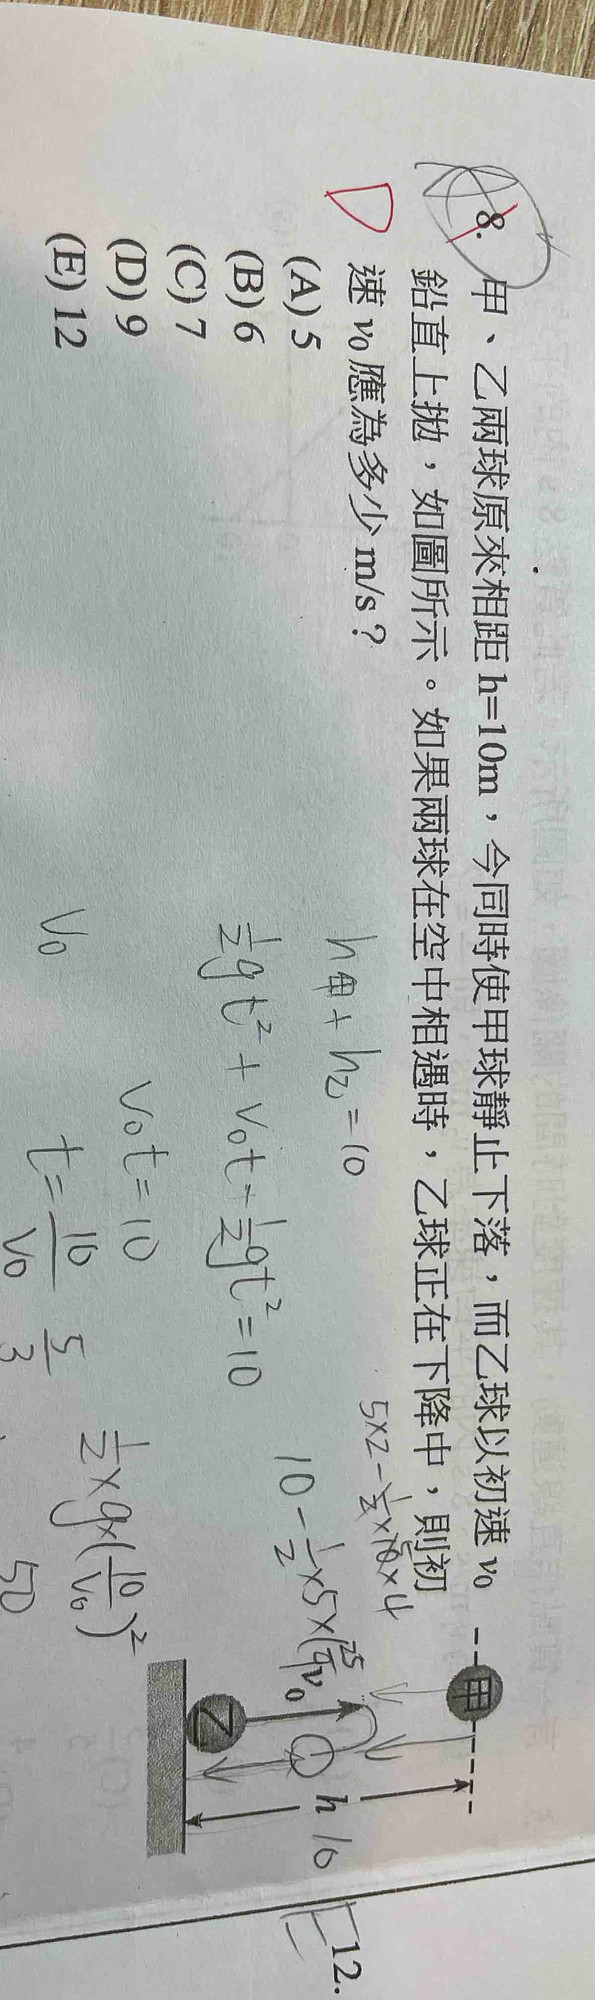 8. 甲、乙兩球原來相距 h=10m，今同時使甲球靜止下落，而乙球以初速 v₀
鉛直上拋，如圖所示。如果兩球在空中相遇時，乙球正在下降中，則初
速 v₀ 應為多少 m/s？
(A) 5
(B) 6
(C) 7
(D) 9
(E) 12
h甲 + h乙 = 10
½gt² + v₀t - ½gt² = 10
v₀t = 10
t = 10/v₀
v₀
5/3
5×2 - ½×10×4
½×g×(10/v₀)²
50
甲
v₀
乙
h 10
12.